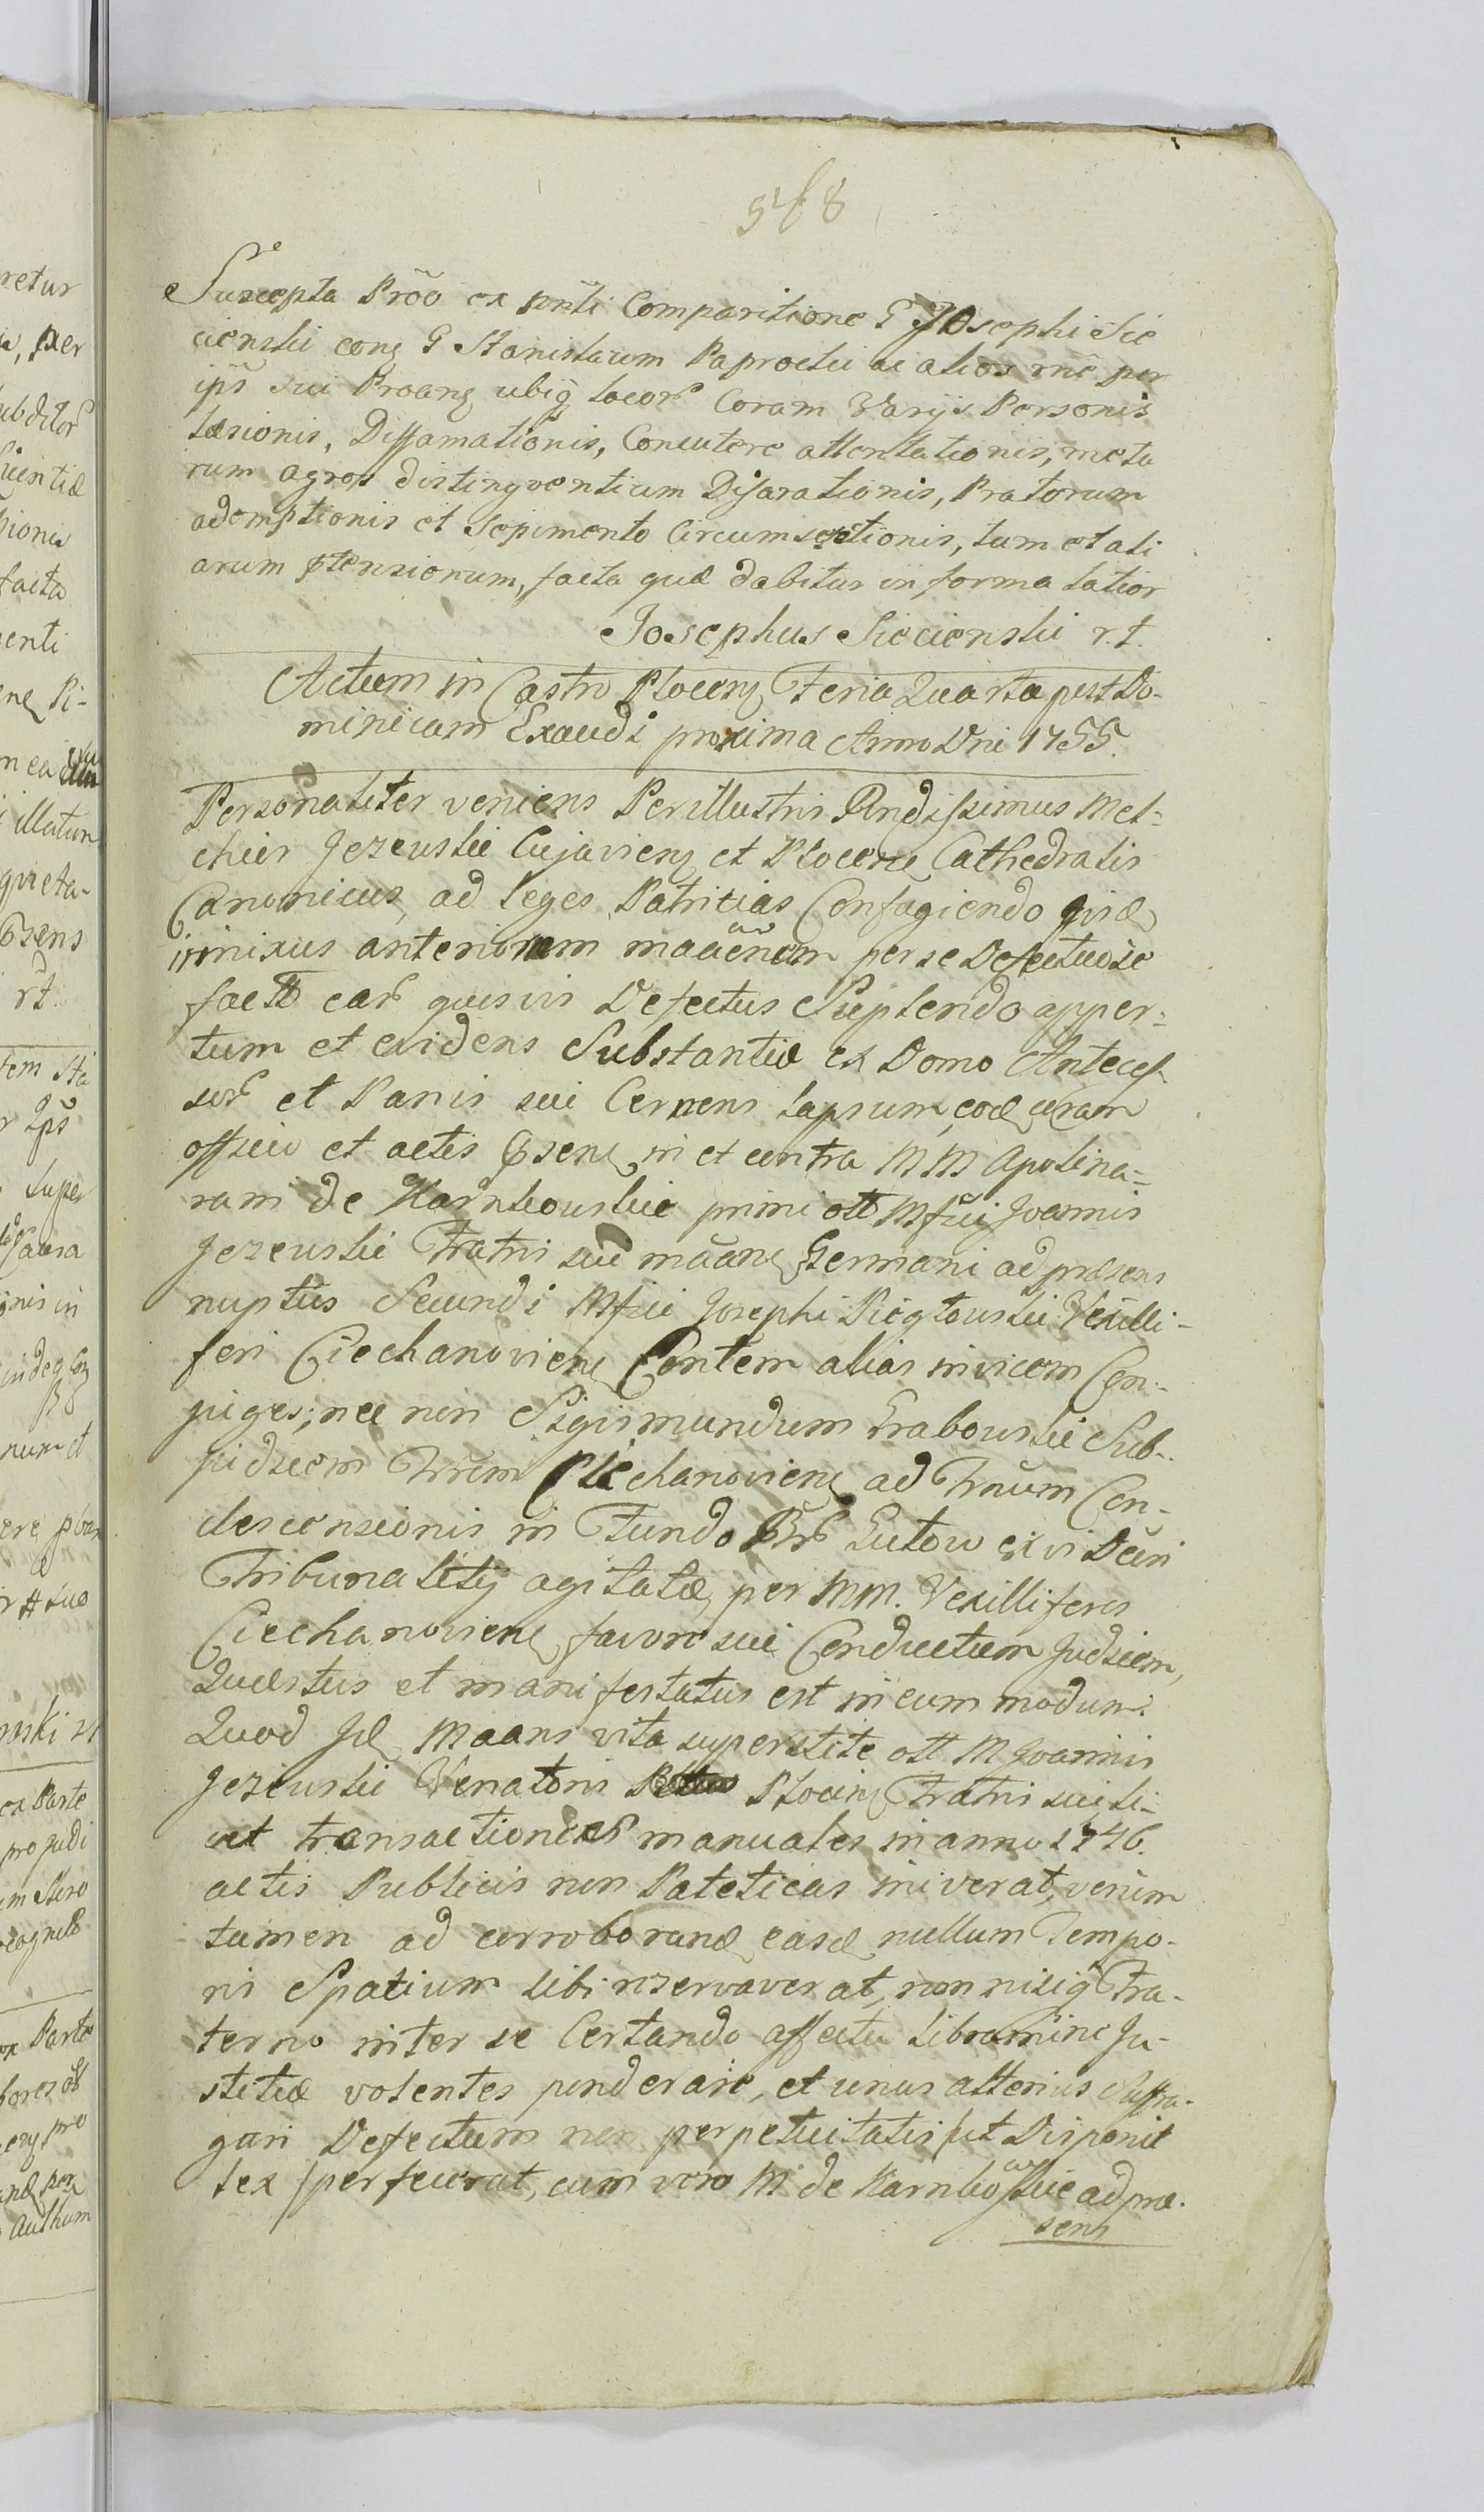 548
Suscepta Prõo ex pnti Comparitione G Josephi Sie
cienski cong G Stanislaum Paprocki ac alios rne per
ips sui Proang ubiq locor Coram Varijs Personis
læsionis, Diffamationis, Concutere attentationis, meta
rum agros distingventium Disarationis, Pratorum
ademptionis et sepimento Circumseptionis, tum et ali
arum ptensionum, facta quæ dabitur in forma latior
Josephus Siecienski r.t.
Actum in Castro Plocen Feria Quarta post Do-
minicam Exaudi proxima Anno Dni 1755.
Personaliter veniens Perillustris Rndissimus Mel-
chior Jezewski Cujavien et Plocen Cathedralis
Canonicus, ad leges Patritias Confugiendo
innixus anteriorem per se Defectuose
fact ear quosvis Defectus Suplendo apper-
tum et evidens Substantiæ ex Domo Anteces
sor et Panis sui Cernens lapsum, coram
officio et actis psen in et contra MM Apolina-
ram de Karnkowskie primi ott Mfci Joannis
Jezewski Fratris sui maan Germani ad præsens
nuptus Secundi Mfci Josephi Pięgłowski Vexilli-
feri Ciechanovien Contem alias invicem Con-
juges; nec non Sigismundum Grabowski Sub-
judicem Trrem Ciechanovien ad Trnum Con-
descensionis in Fundo Bor Lutow ex vi Decri
Tribunalitij agitatæ, per MM. Vexilliferos
Ciechanovien favore sui Conductum Judicem,
Quæstus et manifestatus est in eum modum.
Quod Il Maans vita superstite ott M Joannis
Jezewski Venatoris Plocen Fratris sui li-
cet transactiones manuales in anno 1746.
actis Publicis non Pateticas iniverat, verum
tamen ad corroborand easd nullum Tempo-
ris Spatium sibi reservaverat, non nisi q Fra-
terno inter se Certando affectu libramine Ju-
stitiæ volentes ponderare, et unus alterius Suffra-
gari Defectum non perpetuitatis ut Disponit
lex perfecerat, cum vero M de Karnkowskie ad præ-
sens